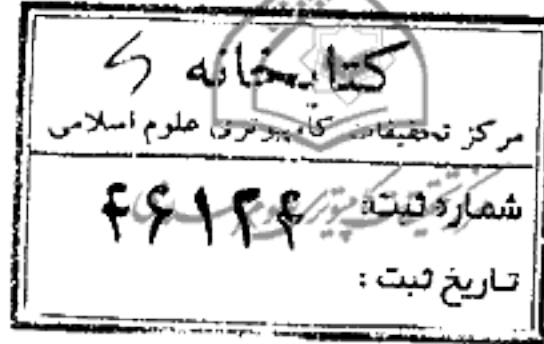 کتابخانه
مرکز تحقیقات کامپیوتری علوم اسلامی
شماره ثبت: ۴۶۱۲۴
تاریخ ثبت :